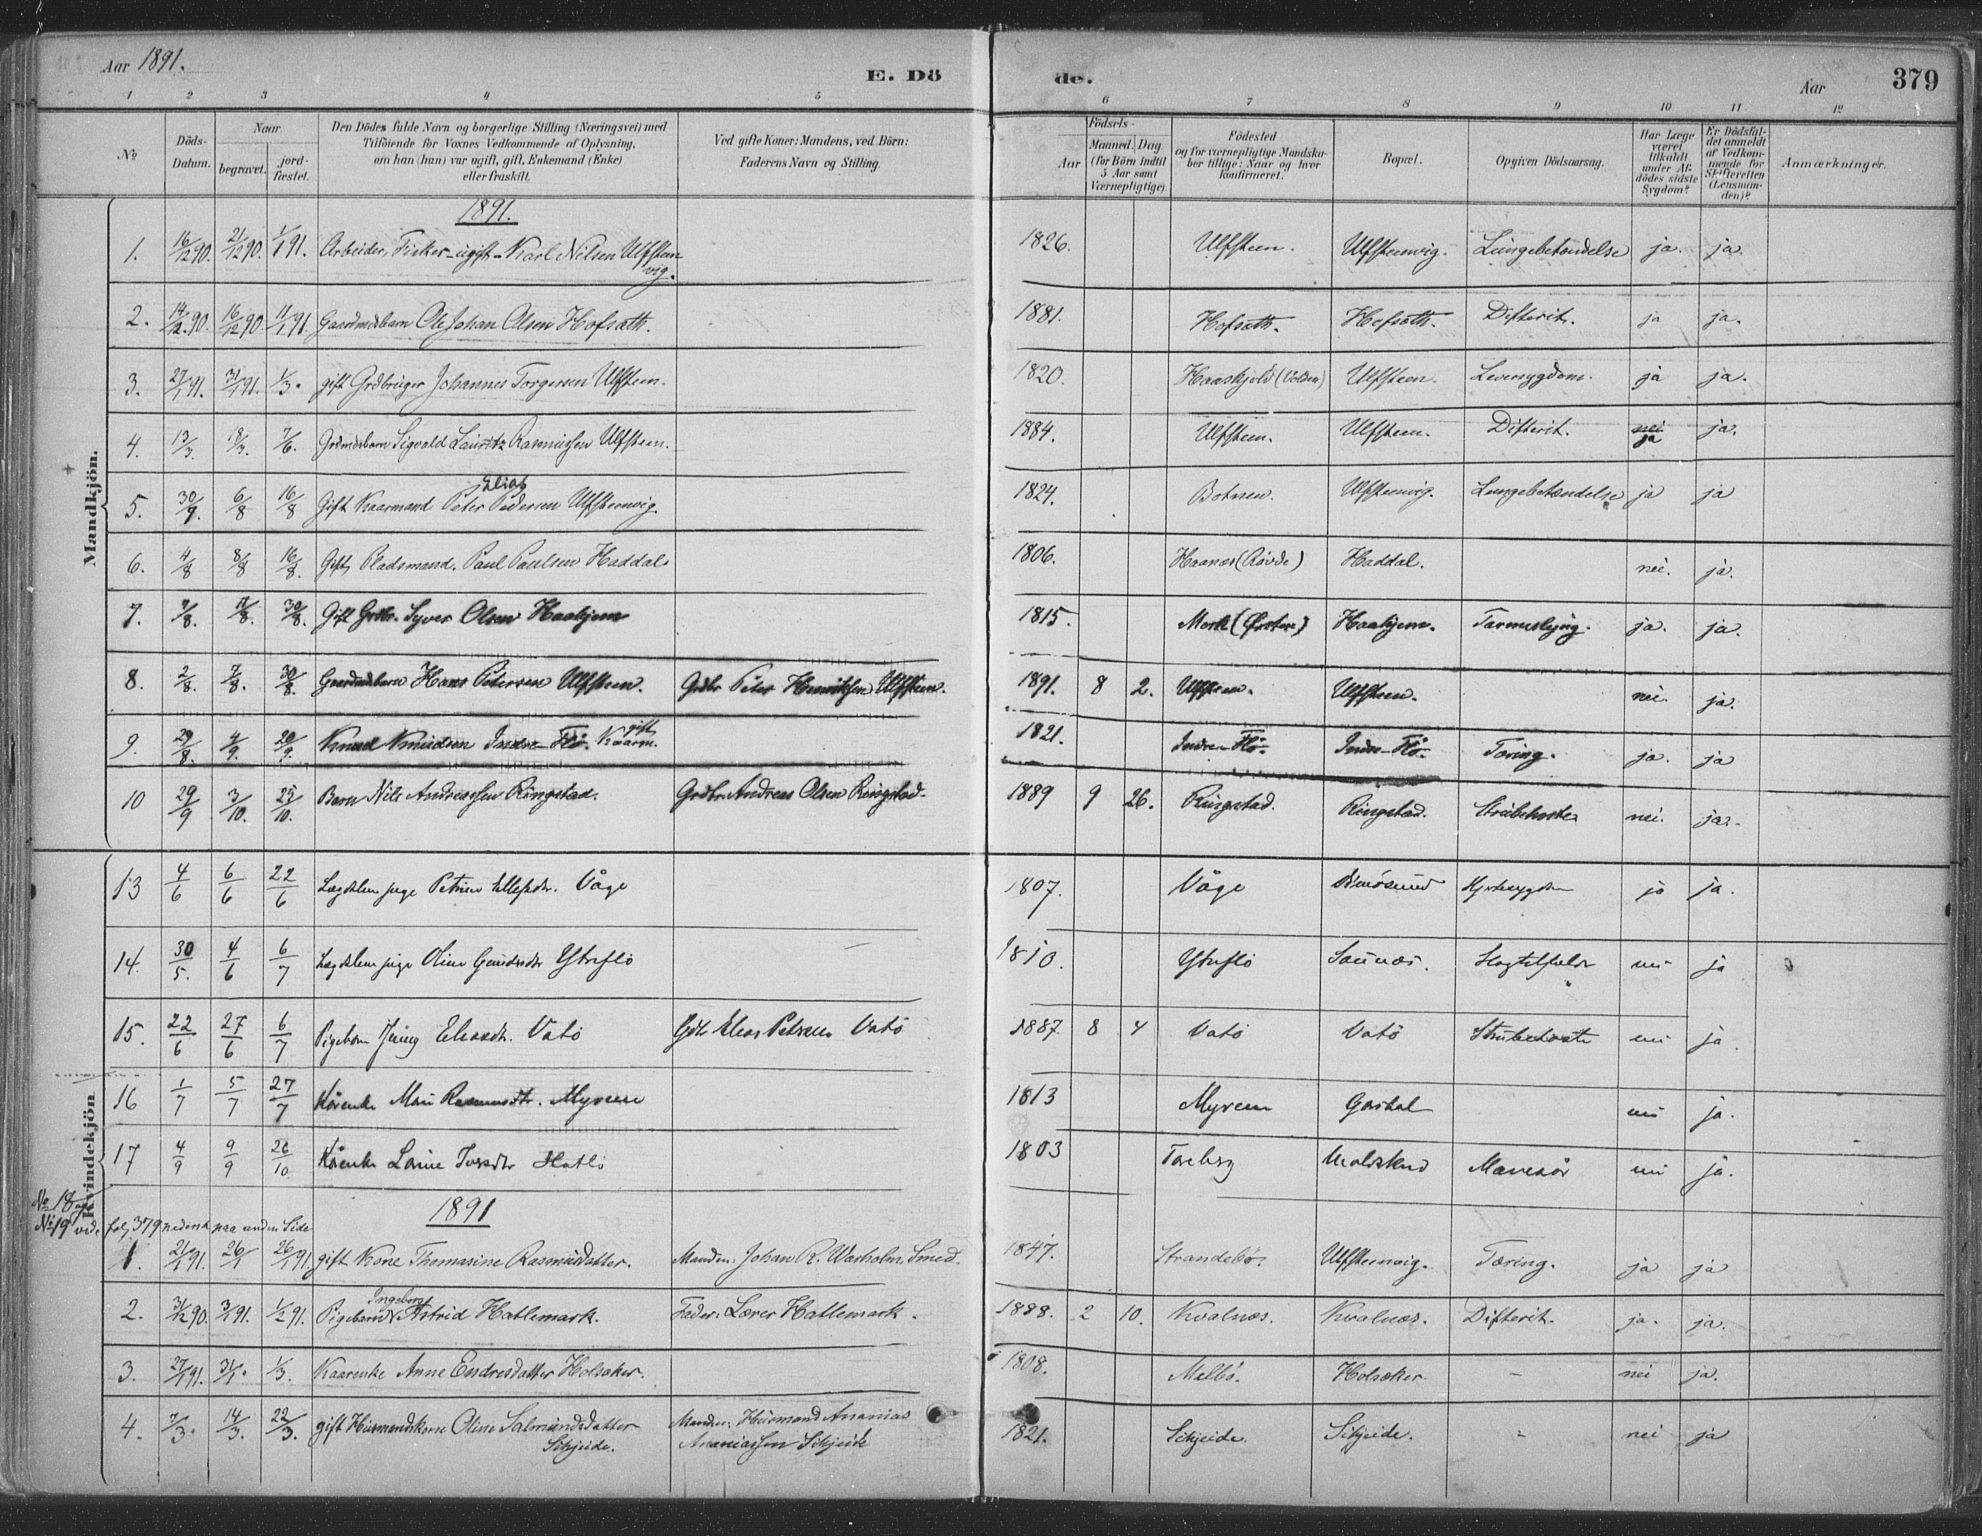 Aar 1891.
E. Dö
de.
Aar
379
1 2 3 4 5 6 7 8 9 10 11 12
№
Döds-Datum.
Naar
begravet.
jord-fæstet.
Den Dödes fulde Navn og borgerlige Stilling (Næringsvei) med
Tilföiende for Voxnes Vedkommende af Oplysning,
om han (hun) var ugift, gift, Enkemand (Enke)
eller fraskilt.
Ved gifte Koner: Mandens, ved Börn:
Faderens Navn og Stilling.
Födsels-
Aar
Maaned. Dag
(for Börn indtil
5 Aar samt
Værnepligtige).
Födested
og for værnepligtige Mandska-
ber tillige: Naar og hvor
konfirmeret.
Bopæl.
Opgiven Dödsaarsag.
Har Læge
været
tilkaldt
under Af-
dödes sidste
Sygdom?
Er Dödsfal-
det anmeldt
af Vedkom-
mende for
Skifteretten
(Lensman-
den)?
Anmærkninger.
Mandkjön.
1891.
1. 16/12 90. 21/12 90. 1/1 91. Arbeider, Fisker - ugift - Karl Nilsen Ulfsteen vig. 1826. Ulfsteen. Ulfsteenvig. Lungebetændelse ja. ja.
2. 14/12 90. 16/12 90. 11/1 91. Gaardmdsbarn Ole Johan Olsen Hofsæth. 1881. Hofsæth. Hofsæth. Difterit. ja ja.
3. 27/1 91. 31/1 91. 1/3. gift Grdbruger Johannes Torgersen Ulfsteen. 1820. Haaskjold (Volden) Ulfsteen. Leversygdom. ja ja.
4. 13/3. 18/3. 7/6. Grdmdsbarn Sigvald Lauritz Rasmussen Ulfsteen. 1884. Ulfsteen. Ulfsteen. Difterit. nei ja ja.
5. 30/7. 6/8 16/8 Gift Kaarmand Peter Elias Pedersen Ulfsteenvig. 1824. Botnen. Ulfsteenvig. Lungebetændelse ja ja
6. 4/8 8/8 16/8. Gift Pladsmand. Paul Paulsen Haddal. 1806. Haanes (Rovde) Haddal. nei. ja.
7. 7/8. 11/8. 30/8. Gift Grdbr. Syver Olsen Haakjem 1815. Mork (Örsten) Haakjem. Tarmeslyng. ja. ja.
8. 2/8. 7/8. 30/8. Gaardmdsbarn Hans Petersen Ulfsteen. Grdbr Peter Henriksen Ulfsteen. 1891. 8 2. Ulfsteen. Ulfsteen. nei. ja.
9. 29/8. 4/9. 20/9. Knud Knudsen Indre-Flö. gift Kaarm. 1821. Indre-Flö. Indre-Flö. Tæring. ja. ja
10 29/9 3/10. 25/10. Barn Nils Andreassen Ringstad. Grdbr. Andreas Olsen Ringstad. 1889 9 26. Ringstad. Ringstad. Strubehoste nei. ja.
Kvindekjön
13 4/6 6/6 22/6 Lægdslem pige Petrine Ellefsdtr. Våge 1807. Våge Hjertesygdom ja ja.
14. 30/5. 4/6 6/7 Lægdslem pige Oline Ystreflö 1810. Ystreflö Saunæs. Slagtilfælde nei ja
15. 22/6 27/6 6/7 Pigebarn Jenny Eliasdtr. Vatö Gdb Elias Petersen Vatö 1887. 8 4 Vatö Vatö Strubehoste nei ja.
16 1/7 5/7 27/7 Kårenke Mari Rasmusdtr. Myrene 1813 Myrene nei ja.
17 4/9 9/9 26/10 Kårenke Hatlö 1803 nei ja.
No 18 og
No 19 vide fol. 379 nederst paa anden Side
1891
1. 21/1 91. 26/1 26/1 91. gift Kone Thomasine Rasmusdatter. Manden: Johan R. Warholm, Smed. 1847. Strandebö. Ulfsteenvig. Tæring. ja ja
2. 31/12 90. 3/1 91. 1/2 91. Pigebarnet Ingeborg Astrid Hatlemark. Fader: Lærer Hatlemark. 1888. 2 10. Kvalnæs. Kvalnæs. Difterit. ja. ja.
3. 27/1 91. 31/1. 1/3. Kaarenke Anne Endresdatter Holsæker. 1808. Melbö. Holsæker. - nei ja.
4. 7/3. 14/3. 22/3. gift Husmandskone Oline Salmundsdatter Skjeide. Manden: Husmand Ananias Ananiassen Skjeide 1821. Skjeide. Skjeide. - nei ja